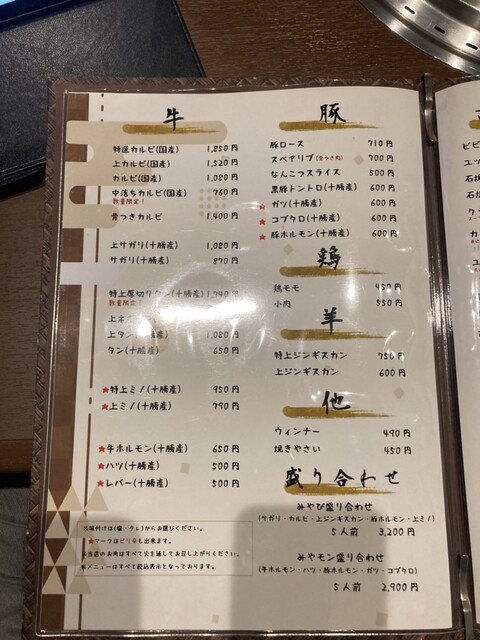 牛
特選カルビ(国産) 1,850円
上カルビ(国産) 1,520円
カルビ(国産) 1,080円
中落ちカルビ(国産) 760円
数量限定!
骨つきカルビ 1,400円
上サガリ(十勝産) 1,080円
サガリ(十勝産) 870円
特上厚切りタン(十勝産) 1,740円
数量限定!
上ネ
上タン(十勝産) 1,080円
タン(十勝産) 650円
★特上ミノ(十勝産) 950円
★上ミノ(十勝産) 790円
★牛ホルモン(十勝産) 650円
★ハツ(十勝産) 500円
★レバー(十勝産) 500円
※味付けは(塩・タレ)からお選びください。
★マークはピリ辛も出来ます。
※当店のお肉はすべて火を通してお召し上がりください。
※メニューはすべて税込表示となっております。
豚
豚ロース 710円
スペアリブ(骨つき肉) 700円
なんこつスライス 500円
黒豚トントロ(十勝産) 600円
★ガツ(十勝産) 600円
★コブクロ(十勝産) 600円
★豚ホルモン(十勝産) 600円
鶏
鶏モモ 450円
小肉 550円
羊
特上ジンギスカン 750円
上ジンギスカン 600円
他
ウィンナー 490円
焼きやさい 450円
盛り合わせ
みやび盛り合わせ
(サガリ・カルビ・上ジンギスカン・豚ホルモン・上ミノ)
5人前 3,200円
みやモン盛り合わせ
(牛ホルモン・ハツ・豚ホルモン・ガツ・コブクロ)
5人前 2,900円
ビビ
ユッ
石焼
石
クッ
カ
ユ